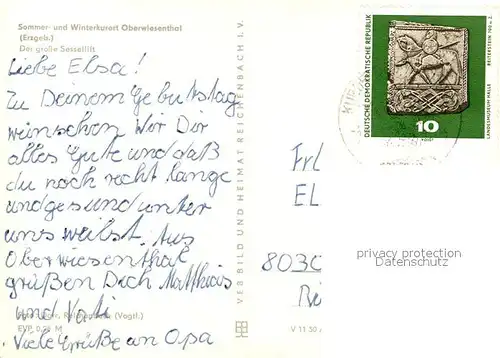 Sommer- und Winterkurort Oberwiesenthal
(Erzgeb.)
Der große Sessellift
Liebe Elsa!
Zu Deinem Geburtstag
wünschen Wir Dir
alles Gute und daß
du noch recht lange
und gesund unter
uns weilst. Aus
Oberwiesenthal
grüßen Dich Matthias
und Vati
Viele Grüße an Opa
(Vogtl.)
EVP 0,25 M
VEB BILD UND HEIMAT REICHENBACH I. V.
V 11 50
DEUTSCHE DEMOKRATISCHE REPUBLIK
REITERSTEIN
LANDESMUSEUM HALLE
10
Frl
EL
8030
privacy protection
Datenschutz